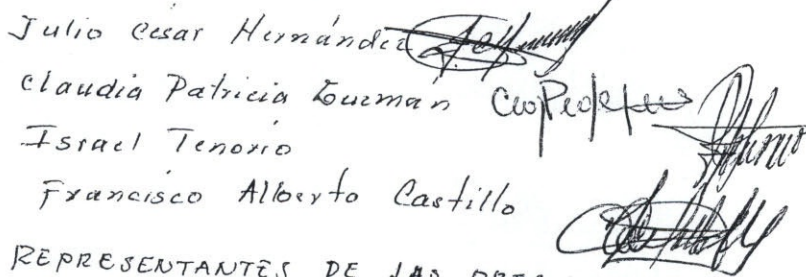 Julio César Hernández
Claudia Patricia Guzmán
Israel Tenorio
Francisco Alberto Castillo
REPRESENTANTES DE LAS